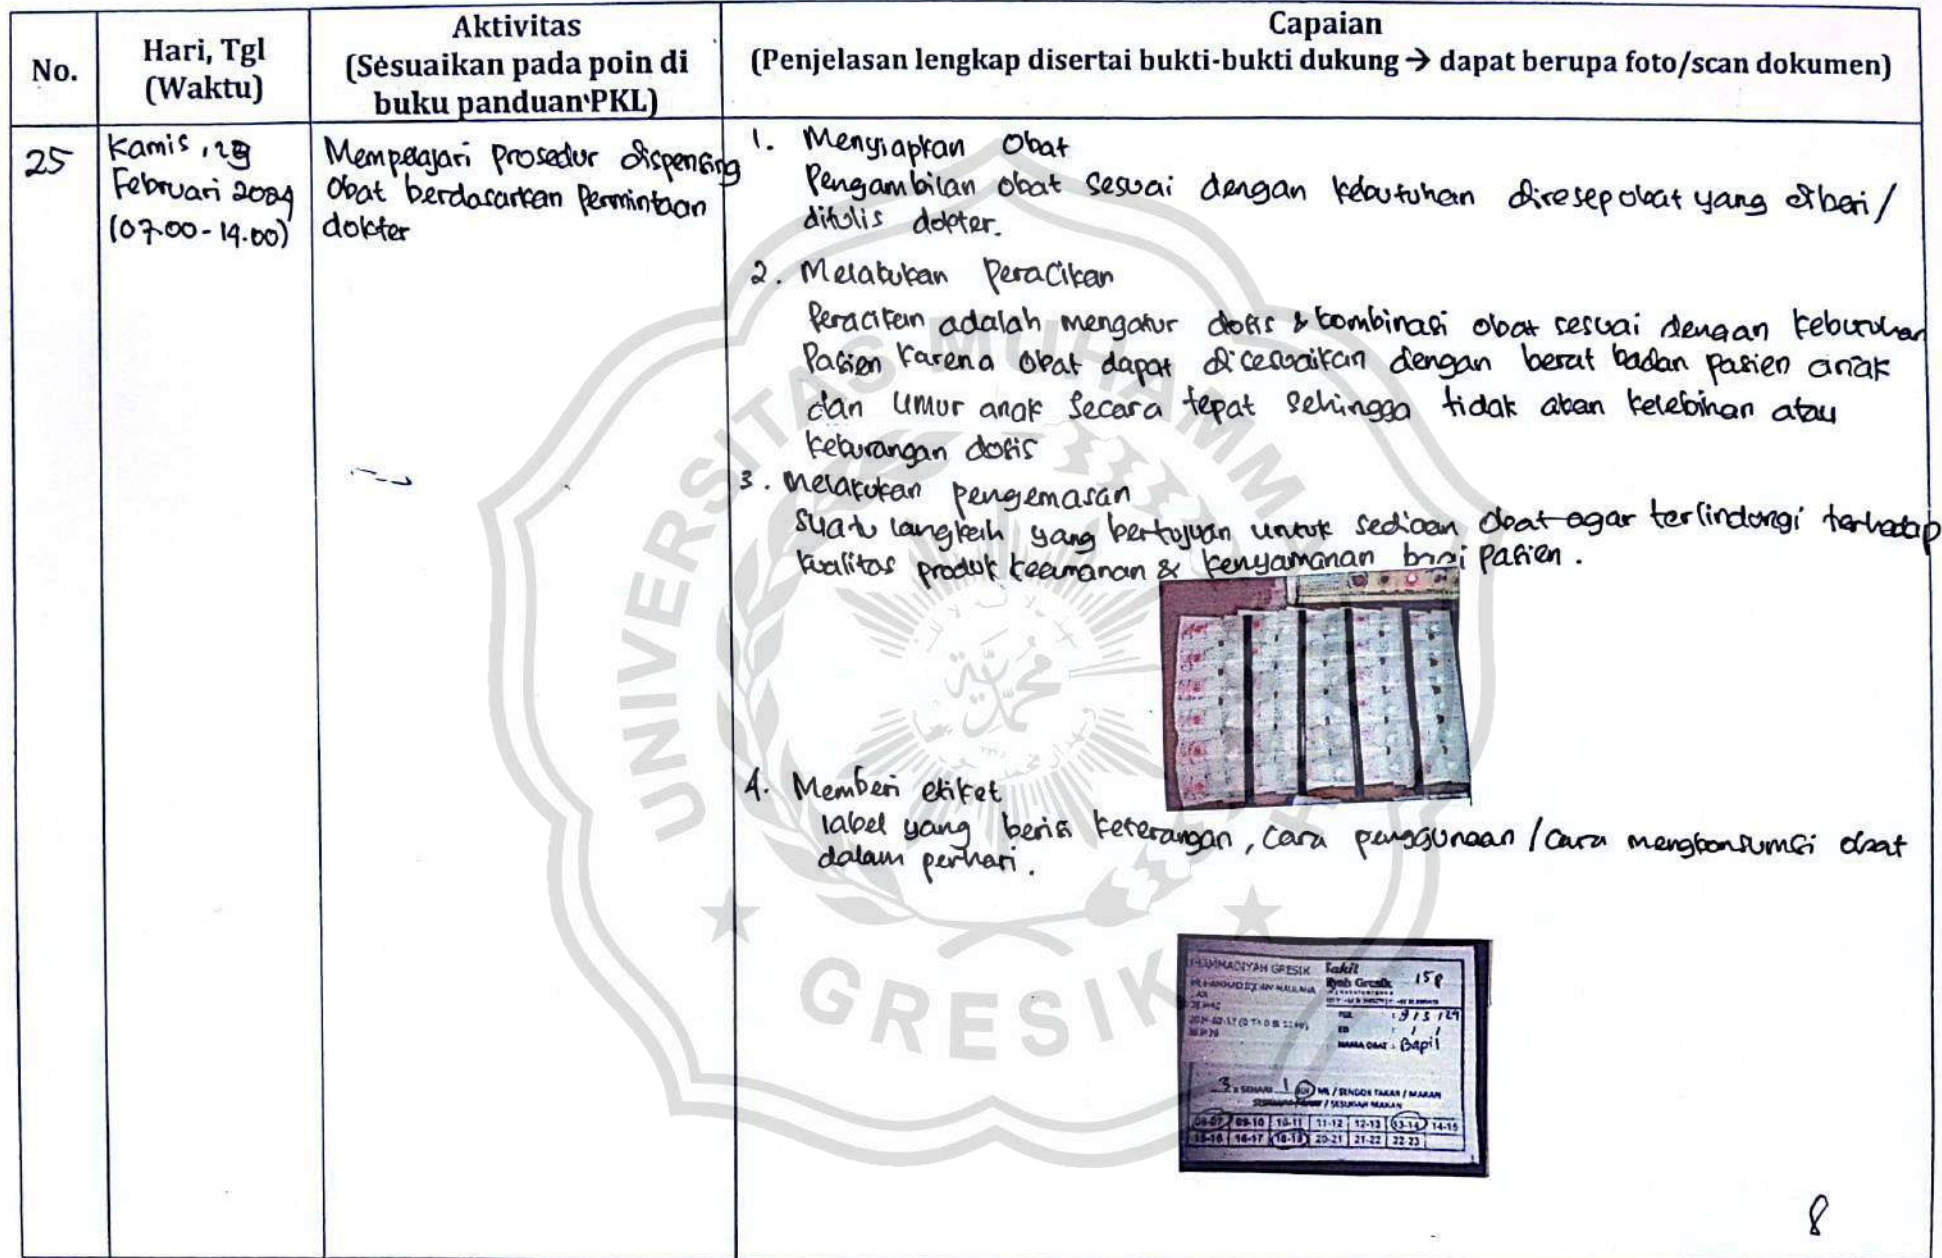 No.
Hari, Tgl
(Waktu)
Aktivitas
(Sesuaikan pada poin di
buku panduan PKL)
Capaian
(Penjelasan lengkap disertai bukti-bukti dukung → dapat berupa foto/scan dokumen)
25
Kamis, 29
Februari 2024
(07.00-14.00)
Mempelajari prosedur dispensing
obat berdasarkan permintaan
dokter
1. Menyiapkan obat
Pengambilan obat sesuai dengan kebutuhan diresep obat yang diberi/
ditulis dokter.
2. Melakukan peracikan
Peracikan adalah mengatur dosis & kombinasi obat sesuai dengan kebutuhan
Pasien karena obat dapat disesuaikan dengan berat badan pasien anak
dan umur anak secara tepat sehingga tidak akan kelebihan atau
kekurangan dosis
3. Melakukan pengemasan
suatu langkah yang bertujuan untuk sediaan obat agar terlindungi terhadap
kualitas produk keamanan & kenyamanan bagi pasien.
4. Memberi etiket
label yang berisi keterangan, cara penggunaan / cara mengkonsumsi obat
dalam perhari.
MUHAMMADIYAH GRESIK
Sakit
Gresik
TGL
ED : / /
NAMA OBAT : Bapil
3 x SEHARI 1 ML / SENDOK TAKAR / MAKAN
/ SESUDAH MAKAN
09-10 10-11 11-12 12-13 13-14 14-15
15-16 16-17 18-19 20-21 21-22 22-23
8
UNIVERSITAS MUHAMMADIYAH
GRESIK